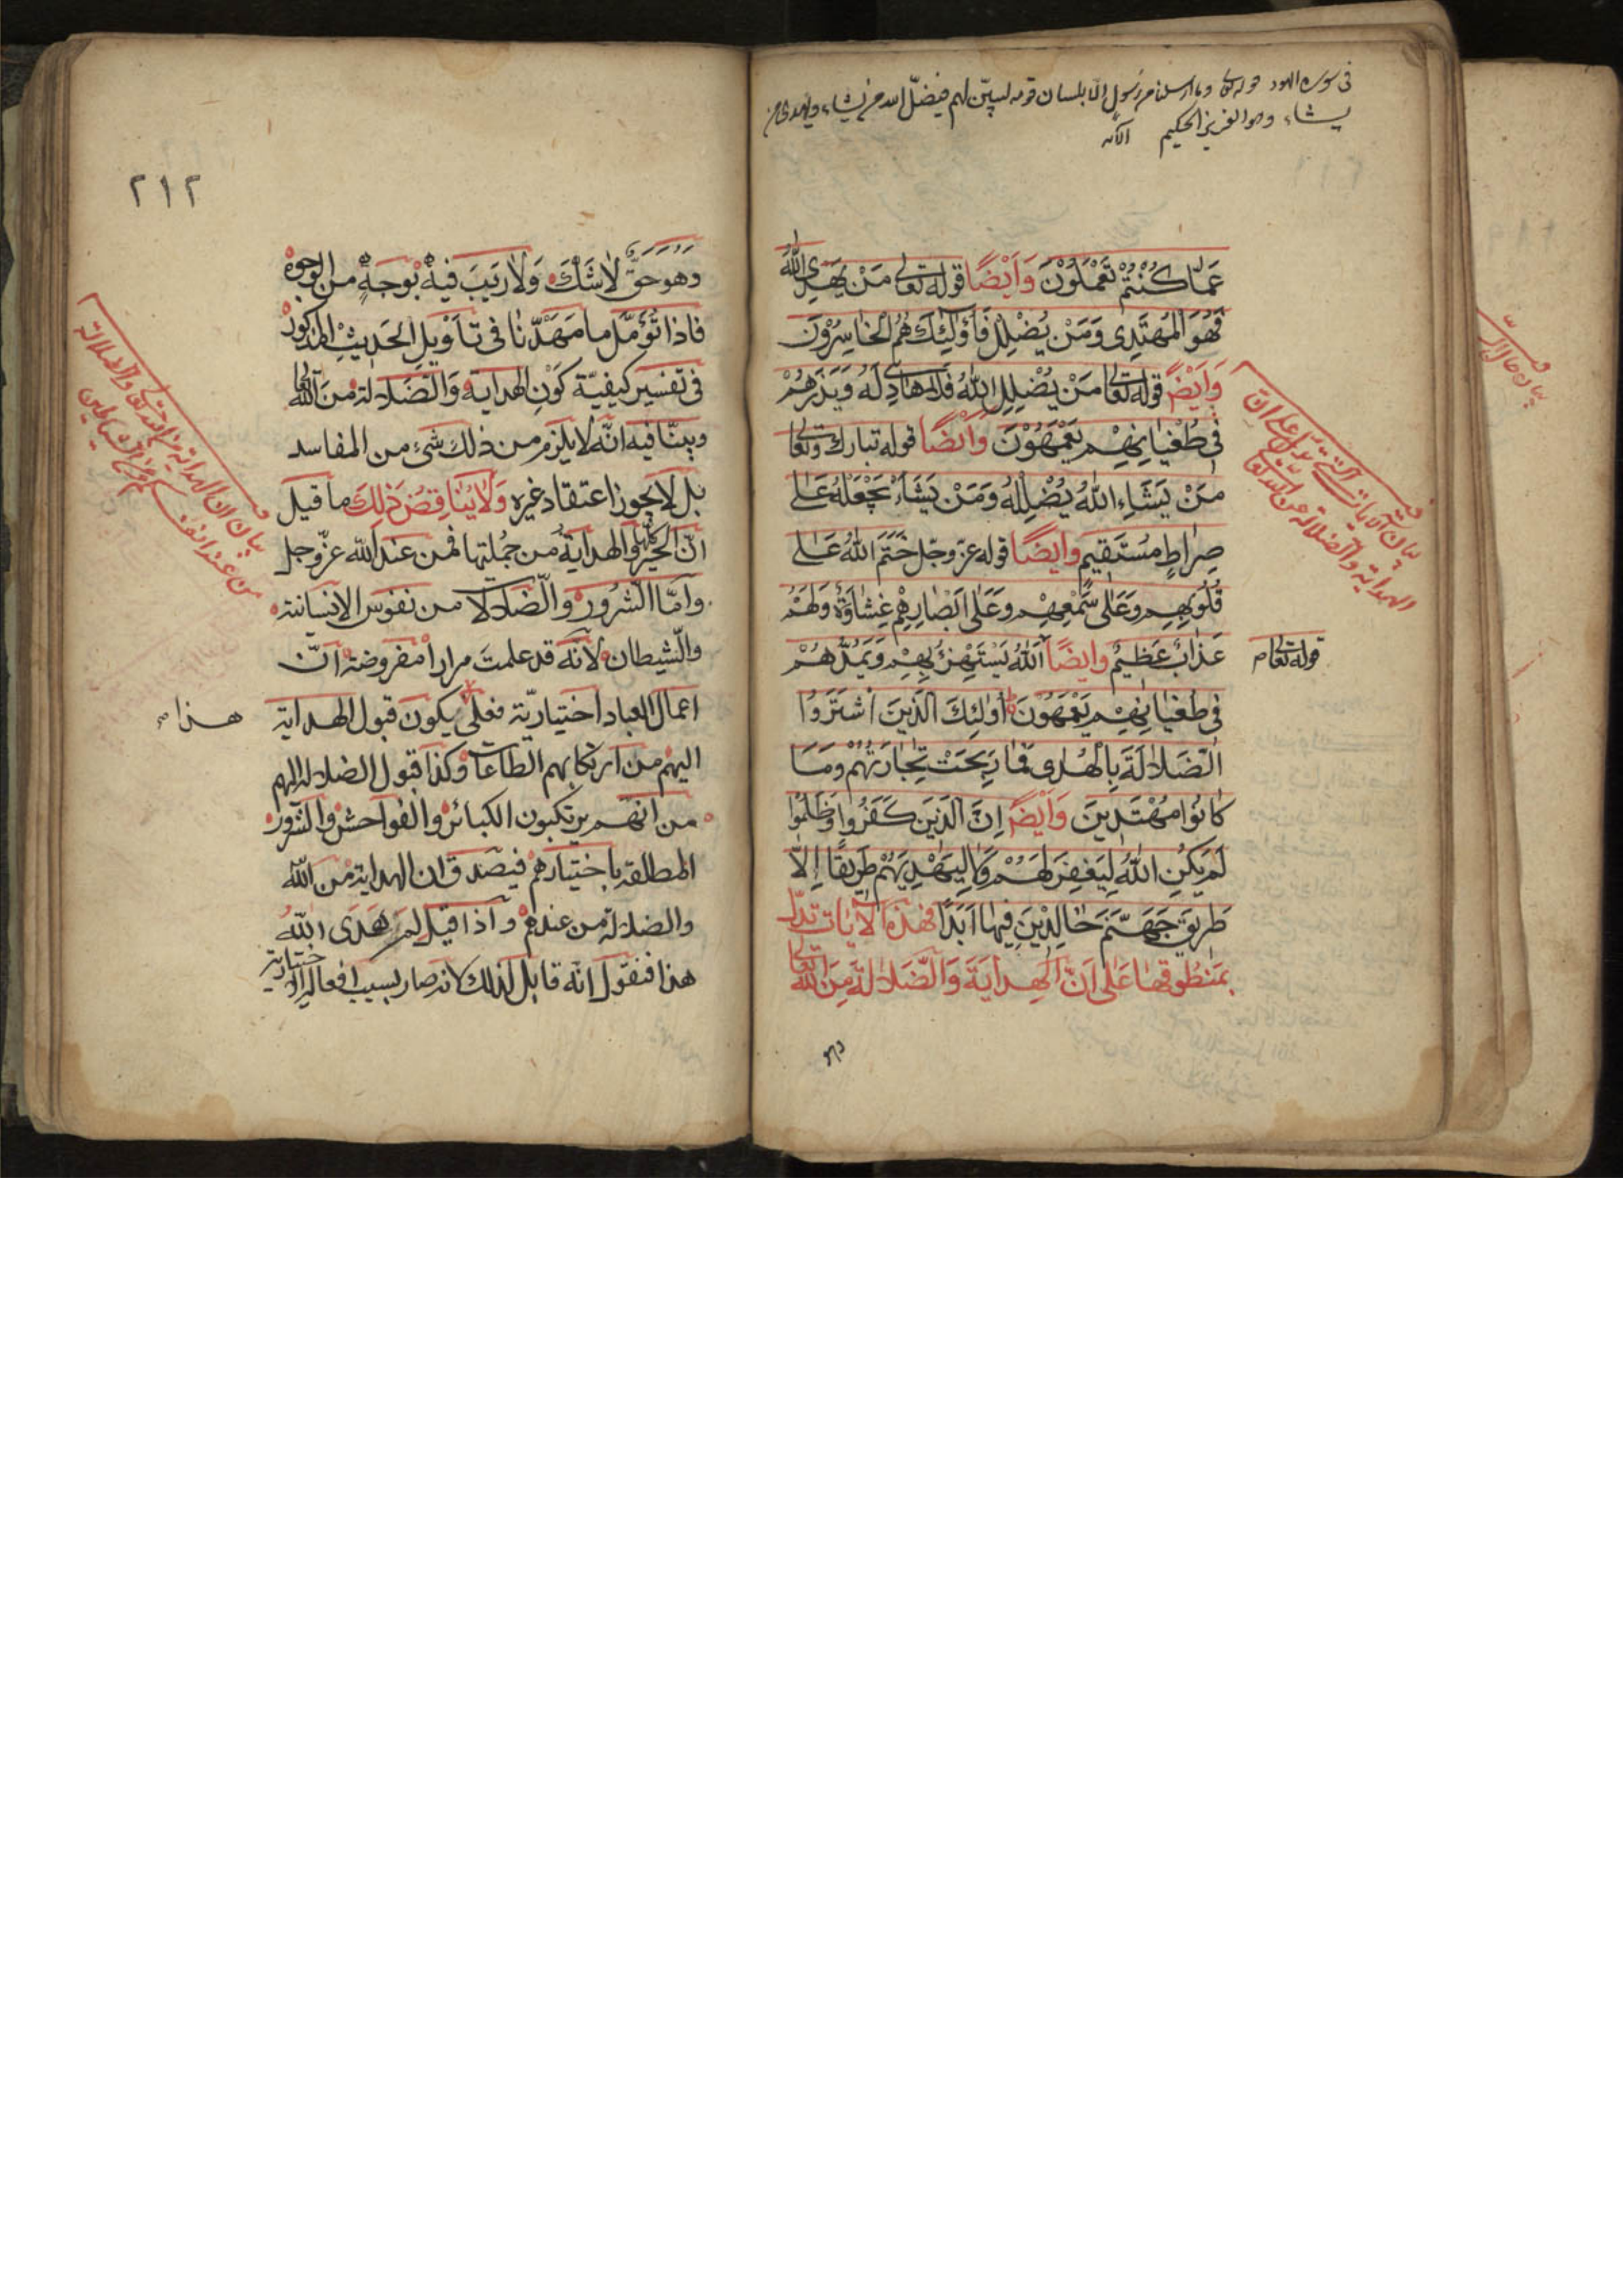 في سورة الهود قوله تعالى وما ارسلنا من رسول الا بلسان قومه ليبيّن لهم فيضلّ الله من يشاء ويهدي من
يشاء وهو العزيز الحكيم الآية
عَمَّا كُنْتُمْ تَعْمَلُوْنَ وَاَيْضًا قوله تعالى مَنْ يَهْدِي اللّٰهُ
فَهُوَ الْمُهْتَدِى وَمَنْ يُضْلِلْ فَاُولٰئِكَ هُمُ الْخَاسِرُوْنَ
وَاَيْضً قوله تعالى مَنْ يُضْلِلِ اللّٰهُ فَلَا هَادِىَ لَهُ وَيَذَرُهُمْ
فِى طُغْيَانِهِمْ يَعْمَهُوْنَ وَاَيْضًا قوله تبارك وتعالى
مَنْ يَشَاءِ اللّٰهُ يُضْلِلْهُ وَمَنْ يَشَاءْ يَجْعَلْهُ عَلٰى
صِرَاطٍ مُسْتَقِيمٍ وايضًا قوله عزّ وجلّ خَتَمَ اللّٰهُ عَلٰى
قُلُوبِهِم وَعَلٰى سَمْعِهِمْ وَعَلٰى اَبْصَارِهِمْ غِشَاوَةٌ وَلَهُمْ
عَذَابٌ عَظِيمٌ وايضًا اَللّٰهُ يَسْتَهْزِئُ بِهِمْ وَيَمُدُّهُمْ
قوله تعالى م
فِى طُغْيَانِهِمْ يَعْمَهُوْنَ اُولٰئِكَ الَّذِينَ اشْتَرَوُا
الضَّلَالَةَ بِالْهُدٰى فَمَا رَبِحَتْ تِجَارَتُهُمْ وَمَا
كَانُوا مُهْتَدِينَ وَاَيْضً اِنَّ الَّذِينَ كَفَرُوا وَظَلَمُوا
لَمْ يَكُنِ اللّٰهُ لِيَغْفِرَ لَهُمْ وَلَا لِيَهْدِيَهُمْ طَرِيقًا اِلَّا
طَرِيقَ جَهَنَّمَ خَالِدِيْنَ فِيهَا اَبَدًا فهذه الْاٰيات تدلّ
بِمَنْطُوقِهَا عَلٰى اَنَّ الْهِدَايَةَ وَالضَّلَالَةَ مِنَ اللّٰهِ تعالى
بيان الآيات التي تدلّ على ان
الهداية والضلالة من الله تعالى
وهو
٢١٢
وَهُوَ حَقٌّ لَا شَكَّ وَلَا رَيْبَ فِيهِ بِوَجْهٍ من الوجوه
فاذا تُؤُمِّل ما مَهَّدْنَا فى تأويل الحَديثِ المذكور
فى تفسير كيفيّة كَوْنِ الهداية وَالضَّلالة من الله تعالى
وبيّنّا فيه انّه لا يلزم من ذلك شئ من المفاسد
بل لا يجوز اعتقاد غيره وَلَا يُنَاقِضُ ذٰلِكَ ما قيل
انّ الخير كلها والهداية من جُملتها فمن عند الله عزّ وجل
وامّا الشّرُور والضّلالة من نفوس الانسانية
والشيطان لانّه قد علمتَ مرارًا مفروضة انّ
اعمال العباد اختياريّة فعلى يكون قبول الهداية
هذا م
اليهم من ارتكابهم الطاعات وكذا قبول الضلالة اليهم
من انهم يرتكبون الكبائر والفواحش والشرور
المطلقة باختيارهم فيصدق ان الهداية من الله
والضلالة من عندهم واذا قيل لم هَدَى اللّٰهُ
هذا فنقول انّه قابل لذلك لانه صار بسبب افعاله الاختيارية
بيان ان الهداية من الله تعالى والضلالة
من عند انفسكم ومن الشياطين